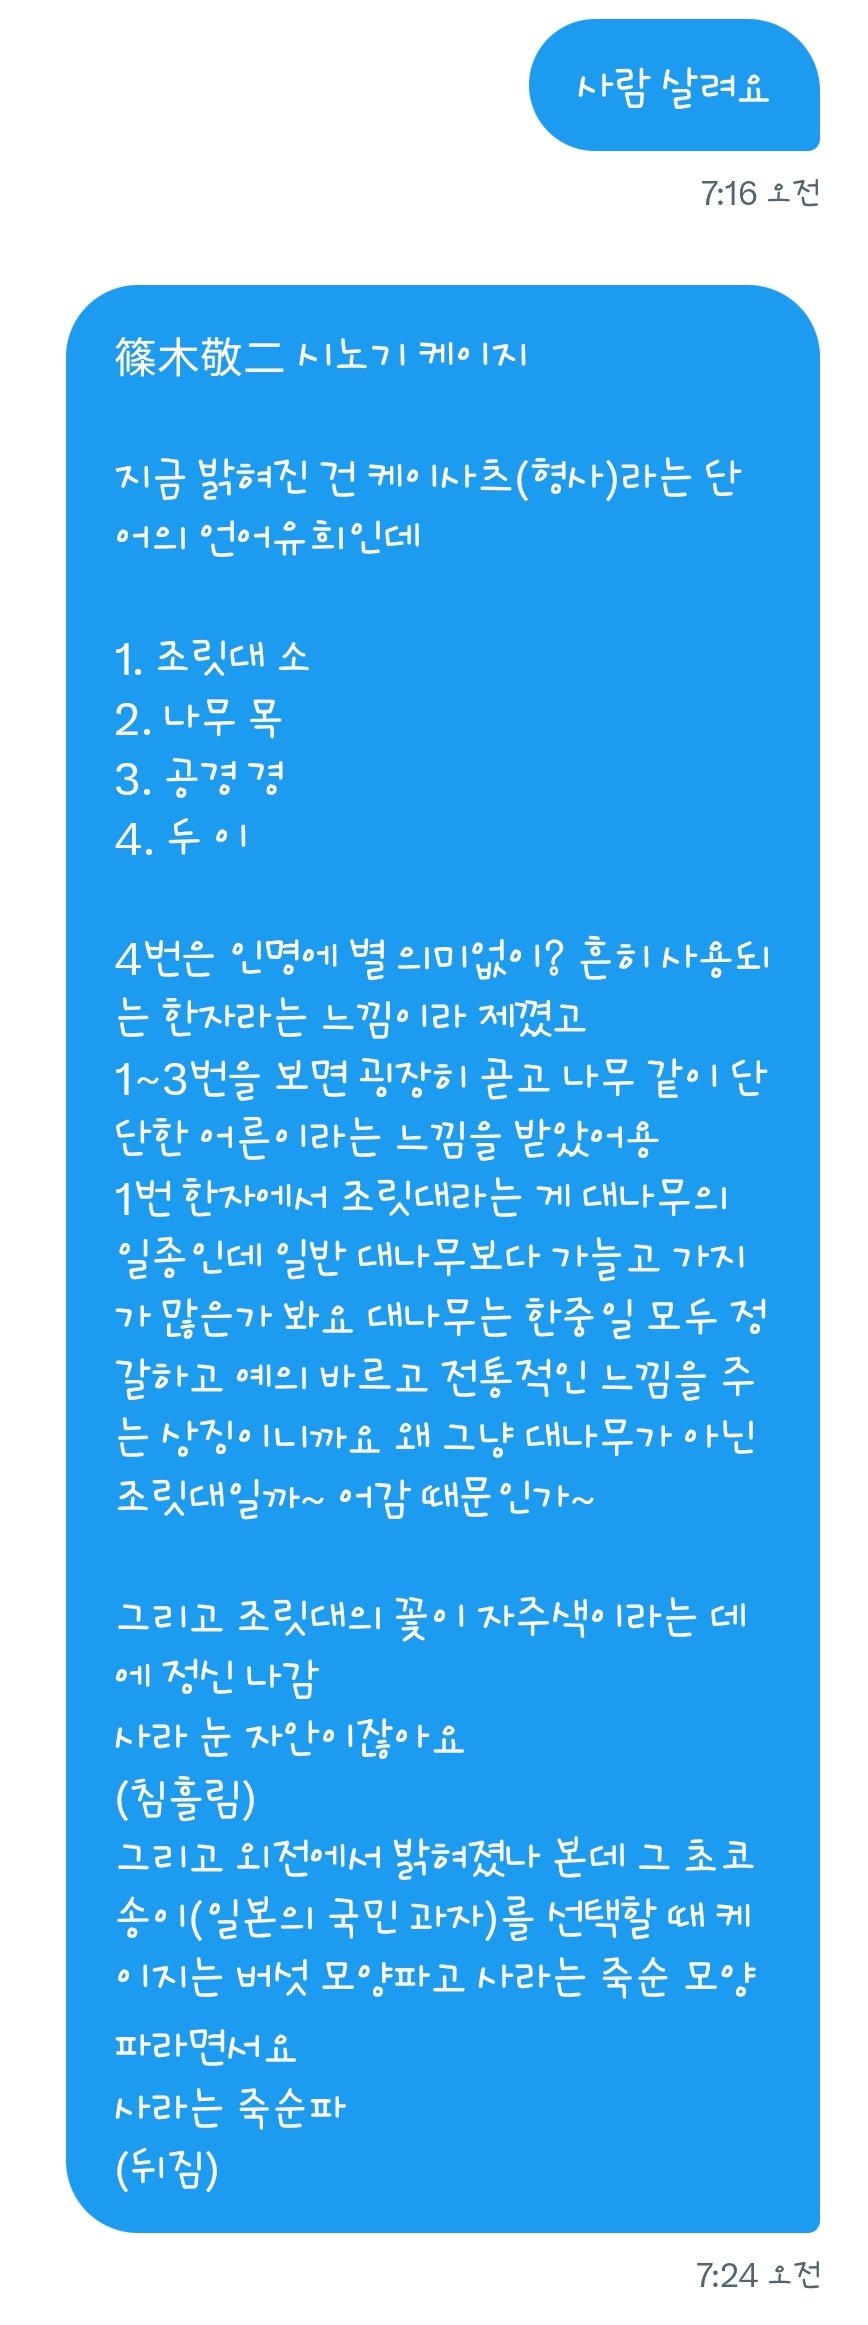 사람 살려요
7:16 오전
篠木敬二 시노기 케이지
지금 밝혀진 건 케이사츠(형사)라는 단
어의 언어유희인데
1. 조릿대 소
2. 나무 목
3. 공경 경
4. 두 이
4번은 인명에 별 의미없이? 흔히 사용되
는 한자라는 느낌이라 제꼈고
1~3번을 보면 굉장히 곧고 나무 같이 단
단한 어른이라는 느낌을 받았어용
1번 한자에서 조릿대라는 게 대나무의
일종인데 일반 대나무보다 가늘고 가지
가 많은가 봐요 대나무는 한중일 모두 정
갈하고 예의 바르고 전통적인 느낌을 주
는 상징이니까요 왜 그냥 대나무가 아닌
조릿대일까~ 어감 때문인가~
그리고 조릿대의 꽃이 자주색이라는 데
에 정신 나감
사라 눈 자안이잖아요
(침흘림)
그리고 외전에서 밝혀졌나 본데 그 초코
송이(일본의 국민 과자)를 선택할 때 케
이지는 버섯 모양파고 사라는 죽순 모양
파라면서요
사라는 죽순파
(뒤짐)
7:24 오전